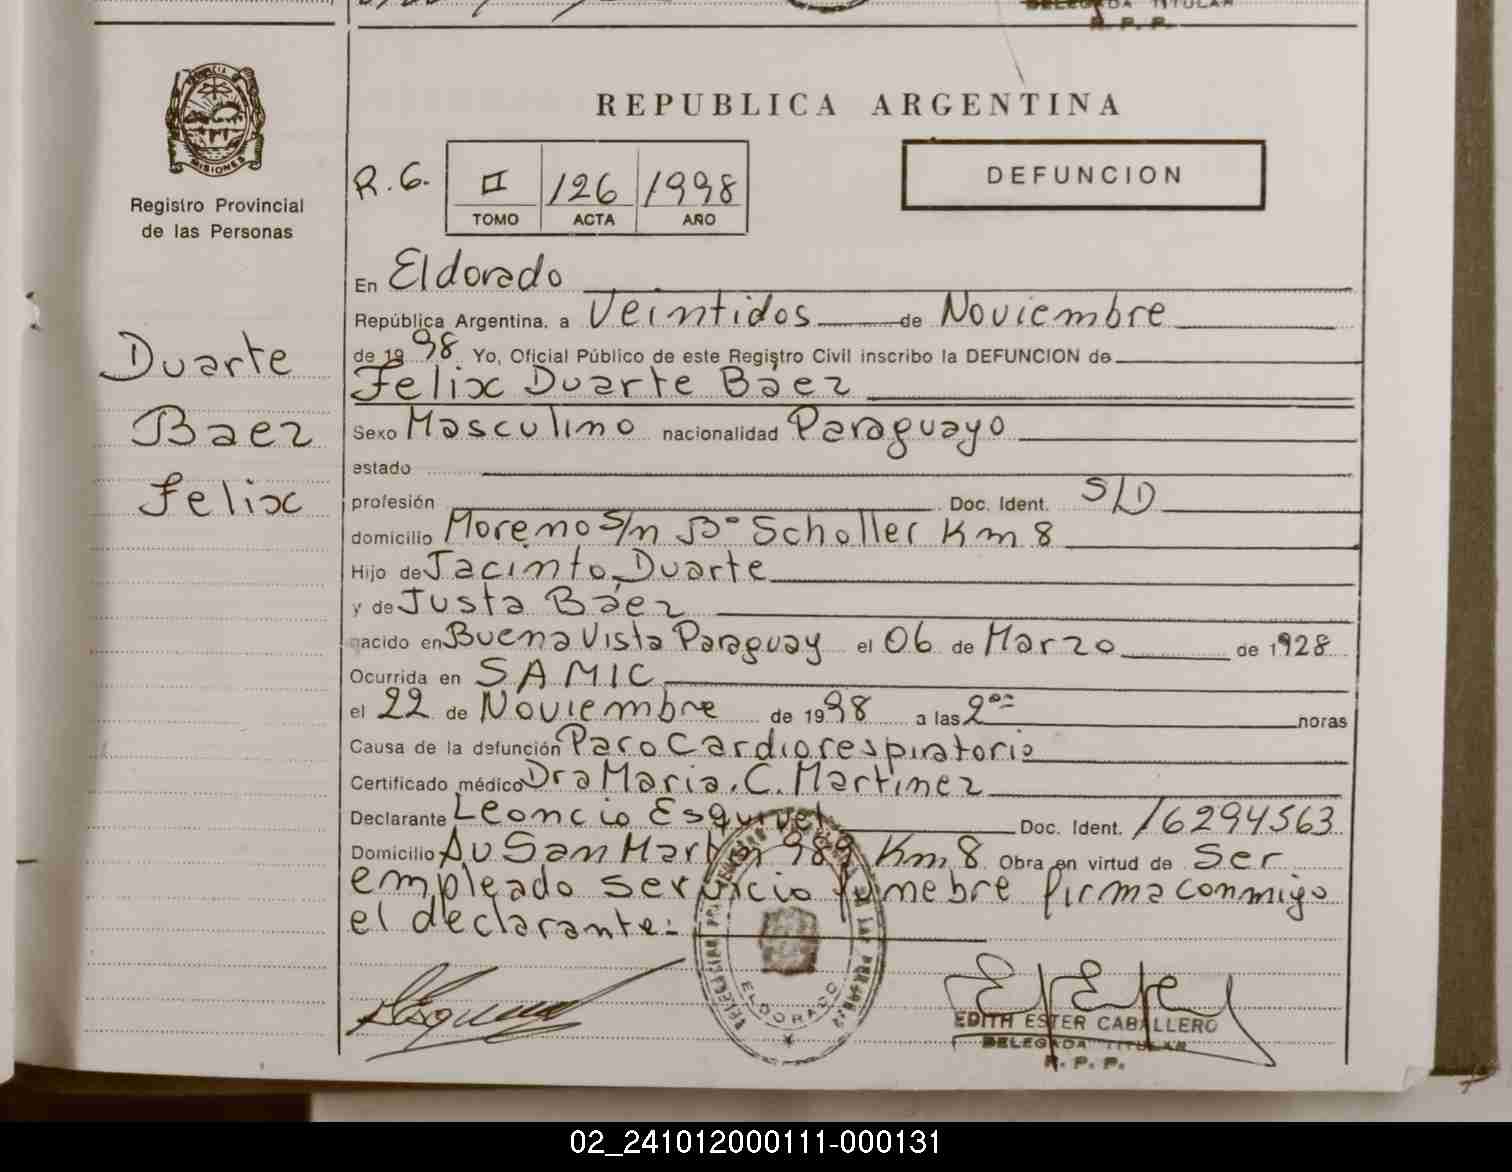 DELEGADA TITULAR
R. P. P.
MISIONES
Registro Provincial
de las Personas
Duarte
Baez
Felix
REPUBLICA ARGENTINA
R.G. II 126 1998
TOMO ACTA AÑO
DEFUNCION
En Eldorado
República Argentina, a Veintidos de Noviembre
de 1998 Yo, Oficial Público de este Registro Civil inscribo la DEFUNCION de
Felix Duarte Báez
Sexo Masculino nacionalidad Paraguayo
estado
profesión Doc. Ident. S/D
domicilio Moreno S/n Bº Scholler Km 8
Hijo de Jacinto Duarte
y de Justa Báez
nacido en Buena Vista Paraguay el 06 de Marzo de 1928
Ocurrida en SAMIC
el 22 de Noviembre de 1998 a las 2⁰⁰ horas
Causa de la defunción Paro Cardiorespiratorio
Certificado médico Dra Maria. C. Martinez
Declarante Leoncio Esquivel Doc. Ident. 16294563
Domicilio Av San Martin 989 Km 8 Obra en virtud de Ser
empleado servicio funebre firma conmigo
el declarante:
ELDORADO
EDITH ESTER CABALLERO
DELEGADA TITULAR
R. P. P.
02_241012000111-000131